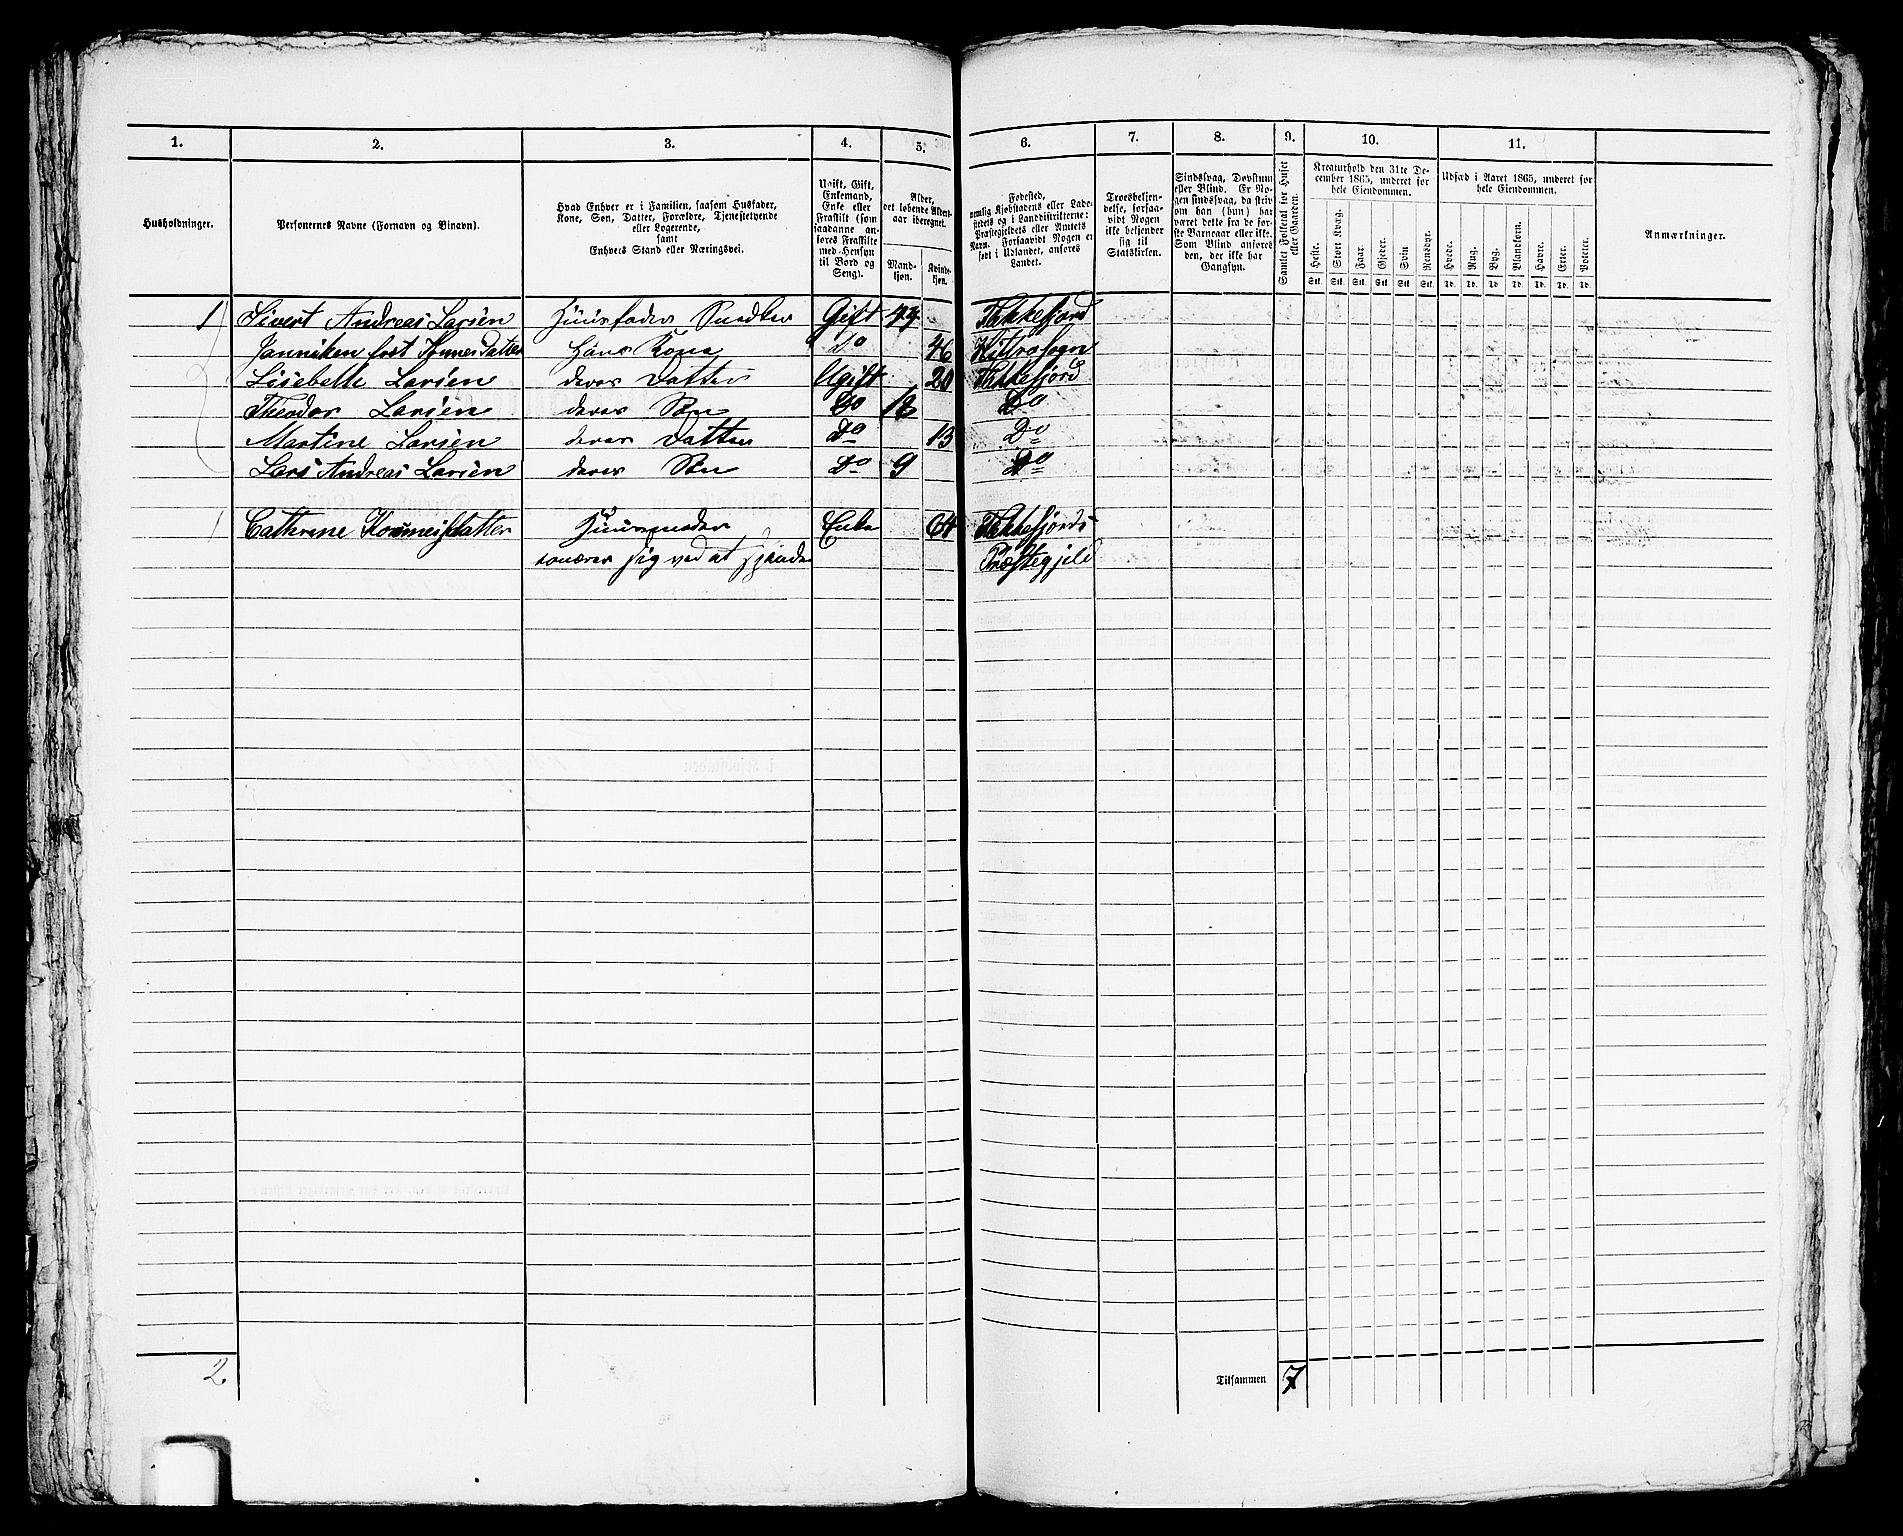 1. 2. 3. 4. 5. 6. 7. 8. 9. 10. 11.
Husholdninger.
Personernes Navne (Fornavn og Binavn).
Hvad Enhver er i Familien, saasom Husfader,
Kone, Søn, Datter, Forældre, Tjenestetyende
eller Logerende,
samt
Enhvers Stand eller Næringsvei.
Ugift, Gift,
Enkemand,
Enke eller
Fraskilt (som
saadanne an-
føres Fraskilte
med Hensyn
til Bord og
Seng).
Alder,
det løbende Alders-
aar iberegnet.
Mand-
kjøn.
Kvinde-
kjøn.
Fødested,
nemlig Kjøbstadens eller Lade-
stedets og i Landdistrikterne:
Præstegjeldets eller Annexets
Navn. Forsaavidt Nogen er
født i Udlandet, anføres
Landet.
Troesbekjen-
delse, forsaa-
vidt Nogen
ikke bekjender
sig til
Statskirken.
Sindssvag, Døvstum
eller Blind. Er No-
gen sindssvag, da skriv
om han (hun) har
været dette fra de før-
ste Barneaar eller ikke.
Som Blind anføres
den, der ikke har
Gangsyn.
Samlet Folketal for Huset
eller Gaarden.
Kreaturhold den 31te De-
cember 1865, underet for
hele Eiendommen.
Heste.
Stort Kvæg.
Faar.
Gjeder.
Svin.
Rensdyr.
Stk. Stk. Stk. Stk. Stk. Stk.
Udsæd i Aaret 1865, underet for
hele Eiendommen.
Hvede.
Rug.
Byg.
Blandkorn.
Havre.
Erter.
Poteter.
Td. Td. Td. Td. Td. Td. Td.
Anmærkninger.
1 Sivert Andreas Larsen Huusfader Gift Flekkefjord
Hans Kone Do 46
Lisebette Larsen deres Datter Ugift 20 Flekkefjord
Theodor Larsen deres Søn Do Do
Martine Larsen deres Datter Do 13 Do
Lars Andreas Larsen deres Søn Do 9 Do
1 Cathrine Huusmoder Enke 64 Flekkefjords
sig ved at Præstegjeld
2
Tilsammen 7